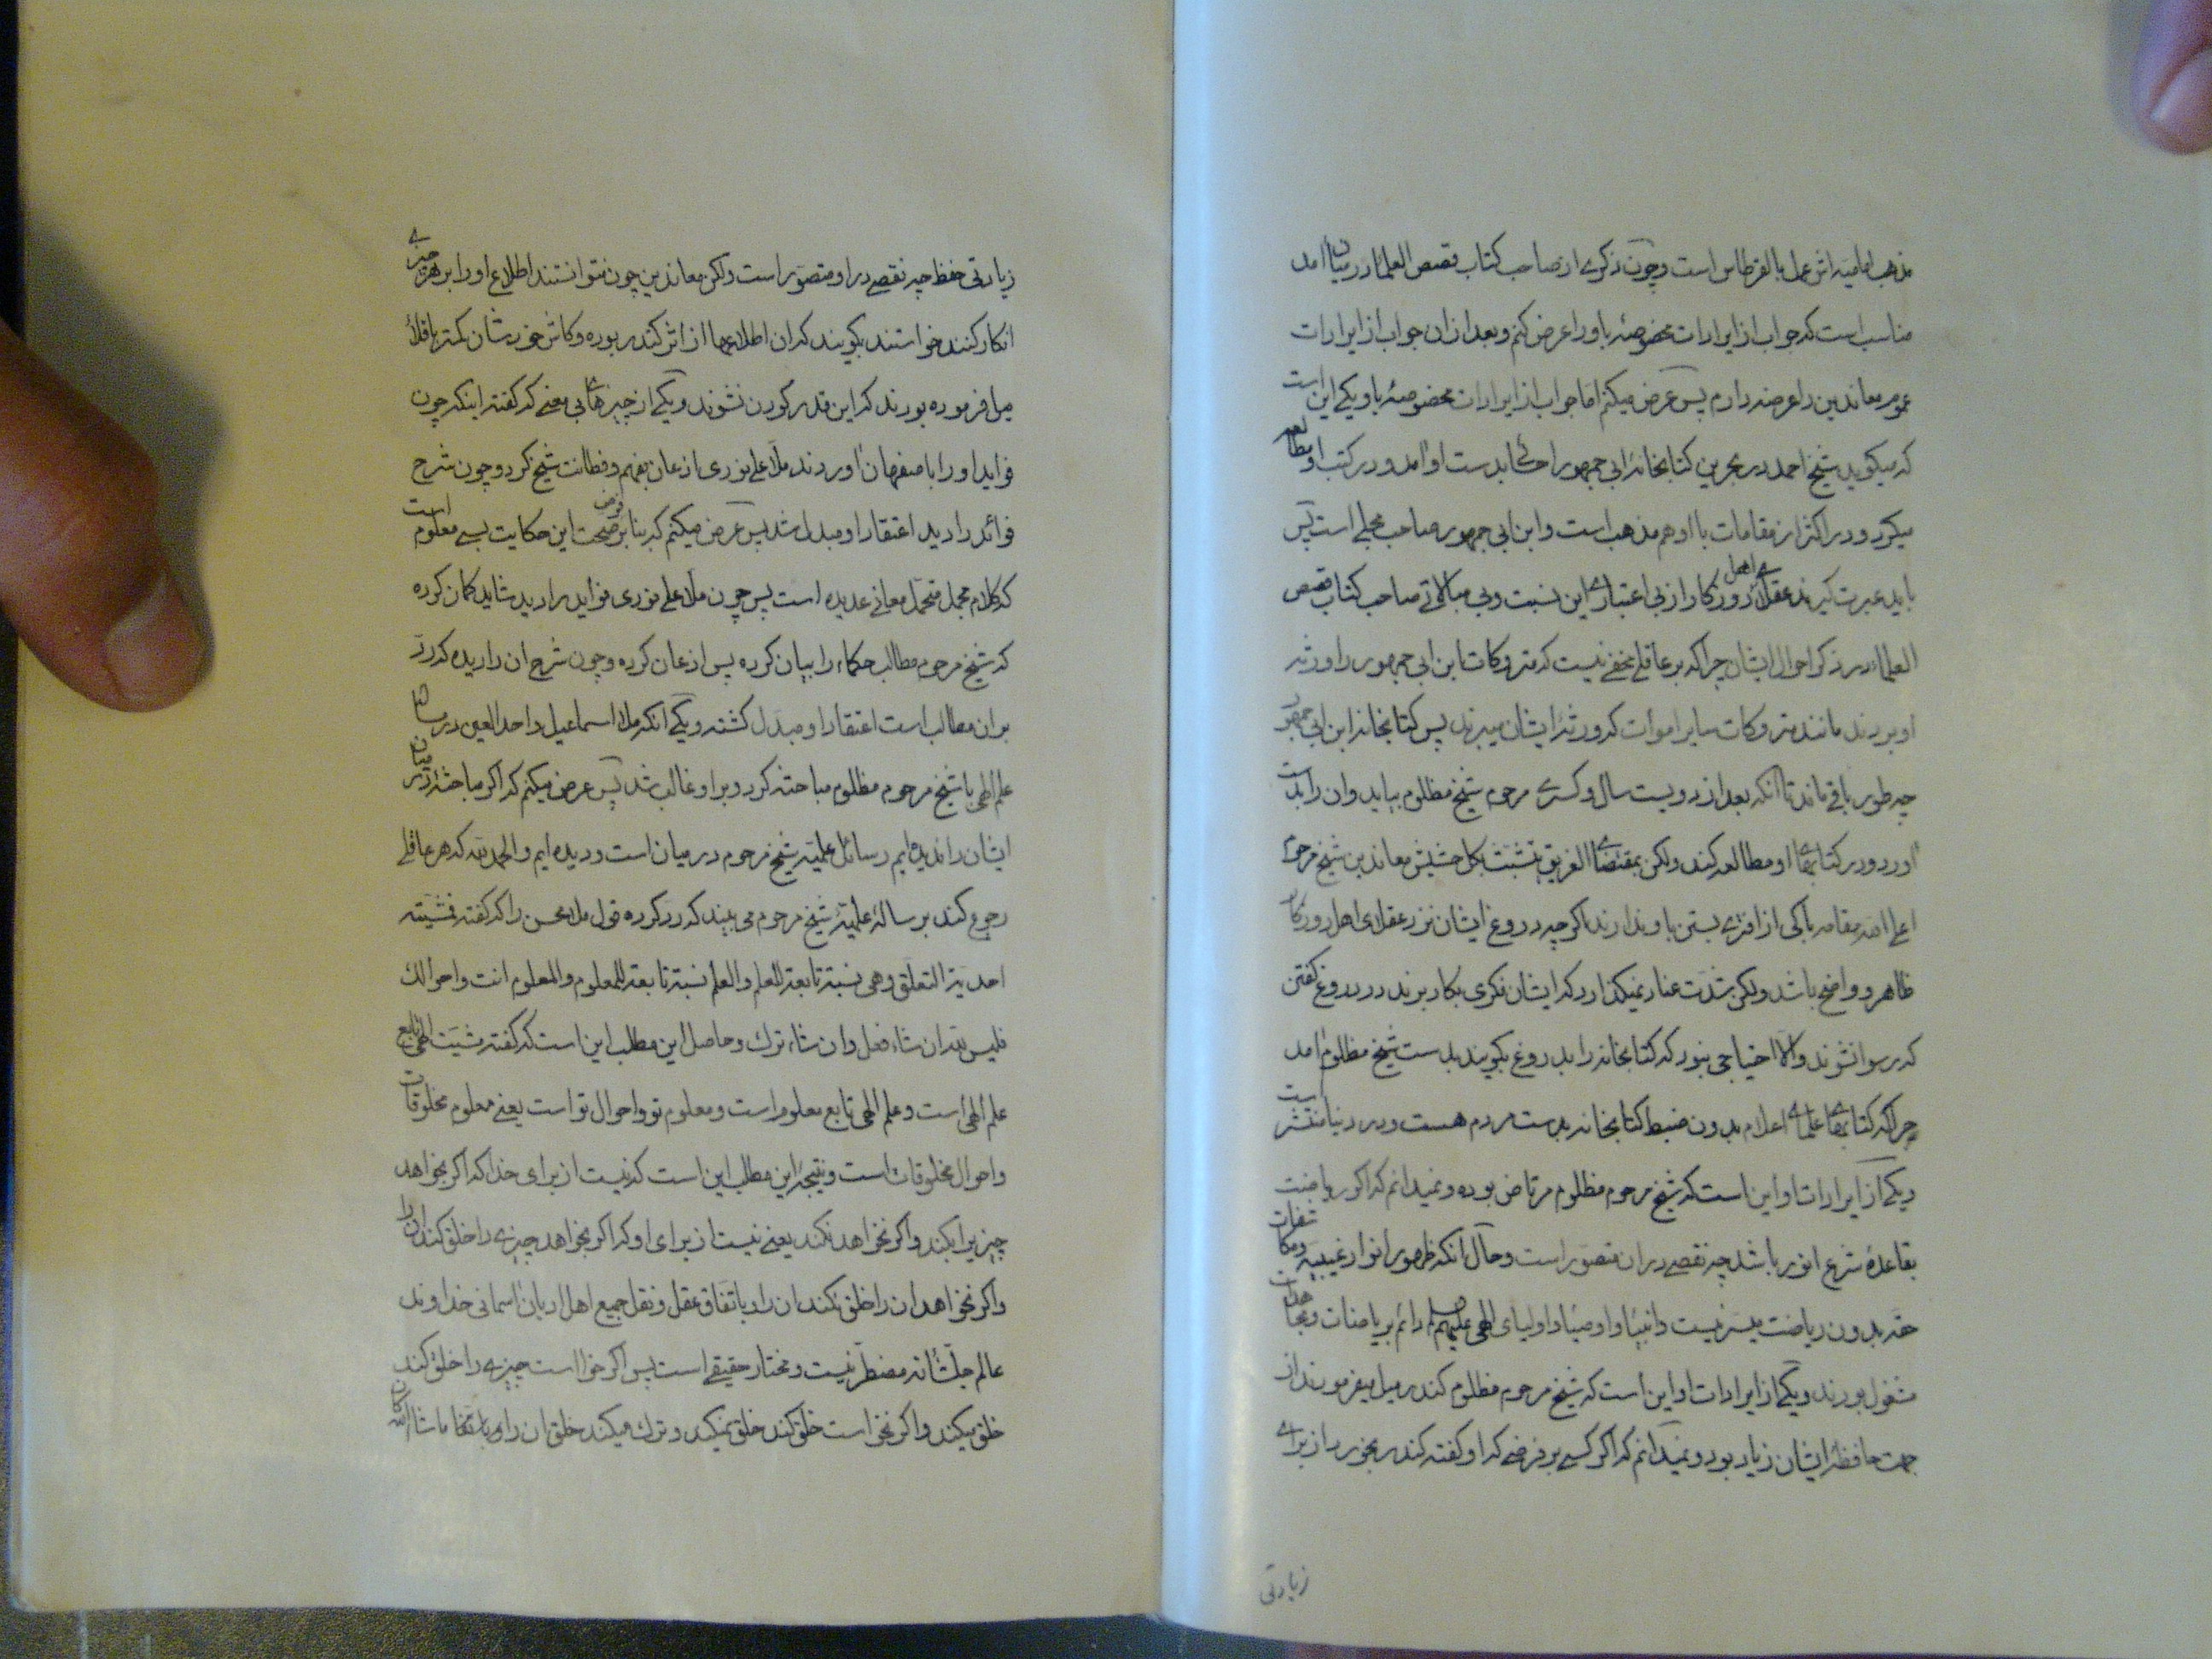 مذهب امامیه اش عمل بالقرطاس است و چون ذکری از صاحب کتاب قصص العلماء در میان امد
مناسب است که جواب از ایرادات مخصوصهٔ باو را عرض کنم و بعد از ان جواب از ایرادات
عموم معاندین را عرضه دارم پس عرض میکنم اما جواب از ایرادات مخصوصهٔ باو یکی این است
که میگوید شیخ احمد در بحرین کتابخانهٔ ابی جمهور احسائی بدست او امد و در کتب او مطالعه
میکرد و در اکثر از مقامات با او هم مذهب است و ابن ابی جمهور صاحب مجلی است پس
باید عبرت گیرند عقلای اهل روزکار از بی اعتباری این نسبت و بی مبالاتی صاحب کتاب قصص
العلماء در ذکر احوال ایشان چرا که بر عاقلی مخفی نیست که متروکات ابن ابی جمهور را ورثه
او بردند مانند متروکات سایر اموات که ورثهٔ ایشان میبرند پس کتابخانه ابن ابی جمهور
چه طور باقی ماند تا انکه بعد از دویست سال و کسری مرحوم شیخ مظلوم بیاید و ان را بدست
اورد و در کتابهای او مطالعه کند ولکن بمقتضای الغریق یتشبث بکل حشیش معاندین شیخ مرحوم
اعلی الله مقامه باکی از افتری بستن باو ندارند اکرچه دروغ ایشان نزد عقلای اهل روزکار
ظاهر و واضح باشد ولکن شدت عناد نمیکذارد که ایشان فکری بکار برند در دروغ گفتن
که رسوا نشوند والا احتیاجی نبود که کتابخانه را بدروغ بگویند بدست شیخ مظلوم امد
چرا که کتابهای علمای اعلام بدون ضبط کتابخانه بدست مردم هست و در دنیا منتشر است
و یکی از ایرادات او این است که شیخ مرحوم مظلوم مرتاض بوده و نمیدانم که اکر ریاضت
بقاعدهٔ شرع انور باشد چه نقصی در ان متصور است و حال انکه ظهور انوار غیبیه و مکاشفات
حقه بدون ریاضت میسر نیست و انبیا و اوصیا و اولیای الهی علیهم السلم دائم بریاضات و مجاهدات
مشغول بودند و یکی از ایرادات او این است که شیخ مرحوم مظلوم کندر میل میفرمودند از
جهت حافظهٔ ایشان زیاد بود و نمیدانم که اکر کسی بر فرضی که او گفته کندر بخورد از برای
زیادتی
زیادتی حفظ چه نقصی در او متصور است ولکن معاندین چون نتوانستند اطلاع او را بر هر چیزی
انکار کنند خواستند بگویند که ان اطلاعها از اثر کندر بوده و کاش خودشان کمتر باقلا
میل فرموده بودند که این قدر کودن نشوند و یکی از چیزهای بی معنی که گفته اینکه چون
فواید او را باصفهان اوردند ملا علی نوری اذعان بفهم و فطانت شیخ کرد و چون شرح
فوائد را دید اعتقاد او مبدل شد پس عرض میکنم که بنا بر فرض صحت این حکایت بسی معلوم است
که کلام مجمل متحمل معانی عدیده است پس چون ملا علی نوری فواید را دید شاید گمان کرده
که شیخ مرحوم مطالب حکماء را بیان کرده پس اذعان کرده و چون شرح ان را دیده که رد
بر ان مطالب است اعتقاد او مبدل گشته و یکی انکه ملا اسماعیل واحد العین در مسائل
علم الهی با شیخ مرحوم مظلوم مباحثه کرد و بر او غالب شد پس عرض میکنم که اکر مباحثهٔ در میان
ایشان را ندیده ایم رسائل علمیه شیخ مرحوم در میان است و دیده ایم والحمد لله که هر عاقلی
رجوع کند برسالهٔ علمیهٔ شیخ مرحوم می بیند که رد کرده قول ملا محسن را که گفته فمشیته
احدیة التعلق وهی نسبة تابعة للعلم والعلم نسبة تابعة للمعلوم والمعلوم انت واحوالک
فلیس لله ان شاء فعل وان شاء ترک و حاصل این مطلب این است که گفته مشیت الهی تابع
علم الهی است و علم الهی تابع معلوم است و معلوم تو و احوال تو است یعنی معلوم مخلوقات
و احوال مخلوقات است و نتیجهٔ این مطلب این است که نیست از برای خدا که اکر بخواهد
چیزیرا بکند و اکر نخواهد نکند یعنی نیست از برای او که اکر بخواهد چیزی را خلق کند ان را
و اکر نخواهد ان را خلق نکند ان را و باتفاق عقل و نقل جمیع اهل ادیان اسمانی خداوند
عالم جلّ شأنه مضطر نیست و مختار حقیقی است پس اکر خواست چیزی را خلق کند
خلق میکند و اکر نخواست خلق کند خلق نمیکند و ترک میکند خلق ان را ما شاء الله کان